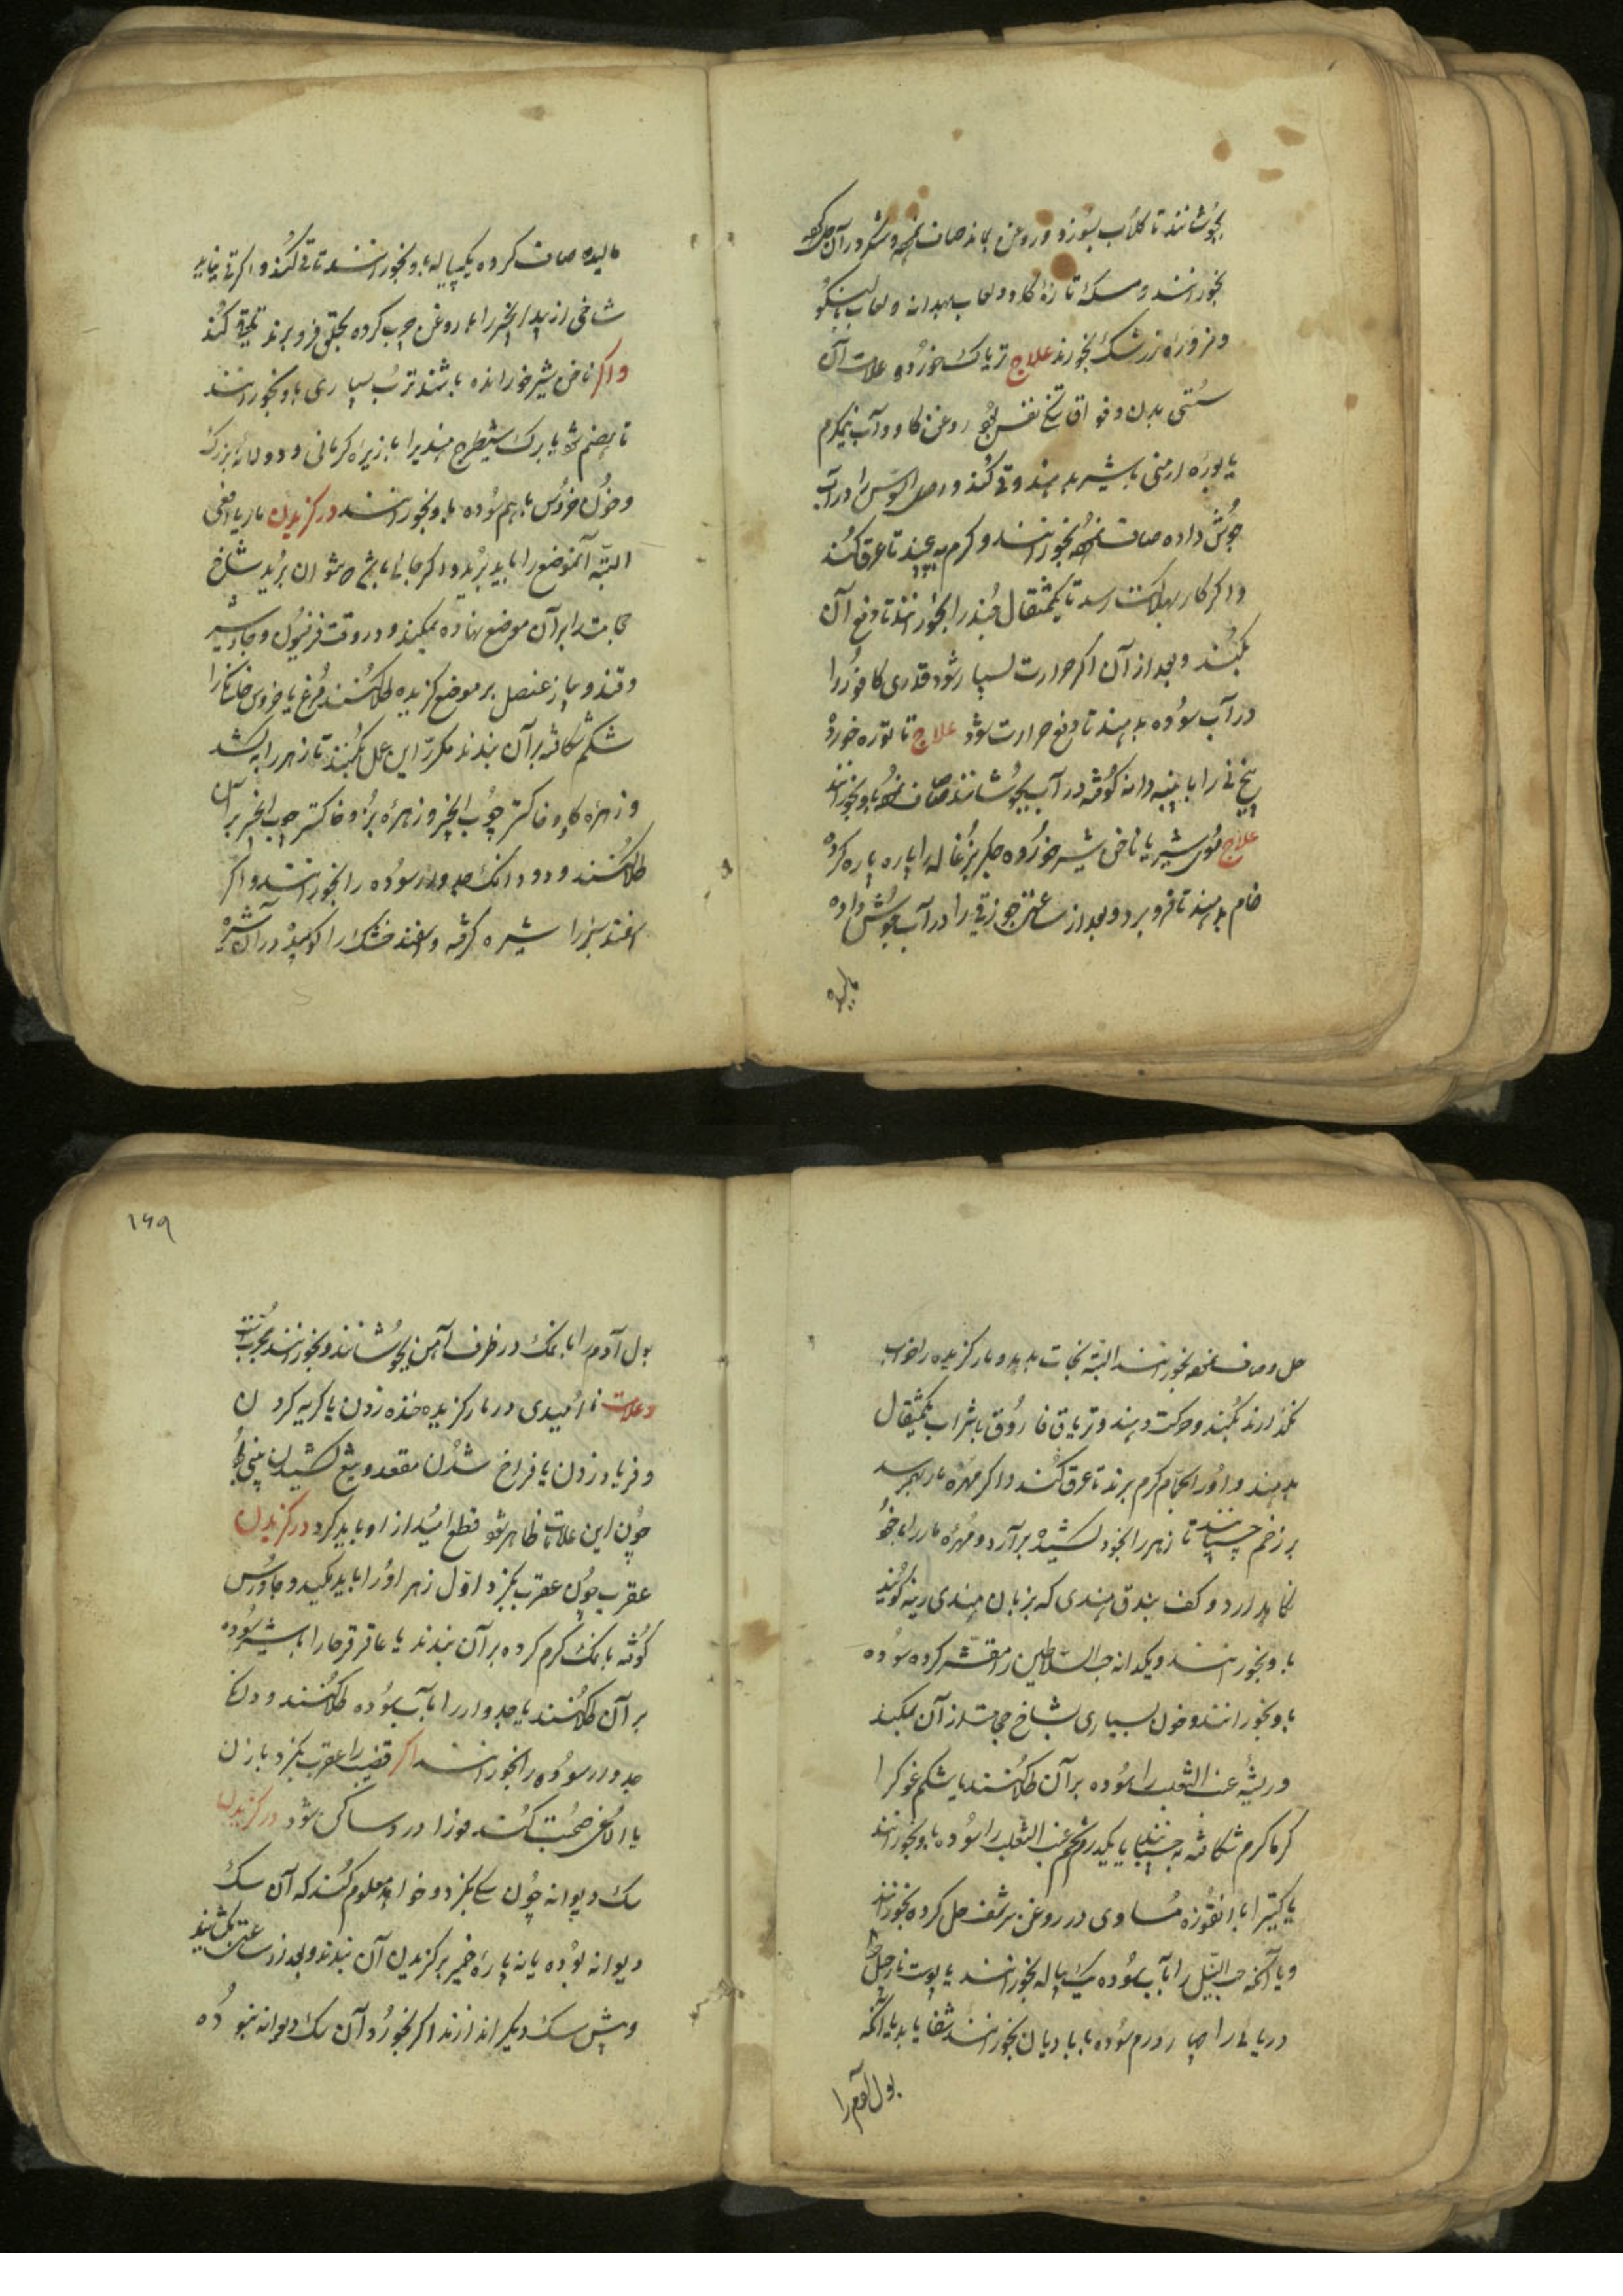 بجوشانند تا گلاب بسوزد و روغن بماند صاف نموده و شکر در آن حل کرده
بخورانند و مسکه تازه گاو و لعاب بهدانه و لعاب بالنگو
و مزوره زرشک بخورند علاج تریاک خورده علامت آن
سستی بدن و فواق تلخ نفس بود روغن گاو و آب نیمگرم
یا بوره ارمنی با شیر بدهند و قی کند و اصل السوس را در آب
جوش داده صاف نموده بخورانند و گرم بپیچند تا عرق کند
و اگر کار بهلاکت رسد تا یکمثقال جند را بخورانند تا دفع آن
بکند و بعد از آن اگر حرارت بسیار شود قدری کافور را
در آب سوده بدهند تا دفع حرارت شود علاج تاتوره خورده
بیخ نی را با پنبه دانه کوفته در آب بجوشانند صاف نموده باو بخورانند
علاج موی شیر یا ناخن شیر خورده جگر بزغاله را پاره پاره کرده
خام بدهند تا فرو برد و بعد از ساعتی جوز قی را در آب جوش داده
مالیده
مالیده صاف کرده یکپیاله باو بخورانند تا قی کند و اگر قی نیاید
شاخی از بید انجیر را با روغن چرب کرده بحلق فرو برند تا قی کند
و اگر ناخن شیر خورانده باشند ترب بسیاری باو بخورانند
تا هضم شود یا برگ شیطرج هندی را با زیره کرمانی و دو دانه بزرگ
و خون خروس با هم سوده باو بخورانند در گزیدن مار یا افعی
البته آنموضع را باید برید و اگر جائی باشد که نتوان برید شاخ
حجامت را بر آن موضع نهاده بمکند و در وقت فرفیون و جاوشیر
و قند و پیاز عنصل بر موضع گزیده طلا کنند مرغ یا خروس خانگی را
شکم شکافته بر آن بندند مکرر این عمل بکنند تا زهر را بکشد
و زهره گاو و خاکستر چوب انجیر و زهره بز و خاکستر چوب انجیر بر آن
طلا کنند و دو دانک جدوار سوده را بخورانند و اگر
اسفند سبز را شیره گرفته و اسفند خشک را کوبیده در آن شیره
حل و صاف نموده بخورانند البته نجات بدهد و مار گزیده را خواب
نگذارند بکند و حرکت دهند و تریاق فاروق با شراب یکمثقال
بدهند و او را بحمام گرم برند تا عرق کند و اگر مهره مار بهم رسد
بر زخم چسپانند تا زهر را بخود کشیده بر آرد و مهره مار را با خود
نگاهدارد و کف بندق هندی که بزبان هندی ریته گویند
باو بخورانند و یکدانه حب السلاطین را مقشر کرده سوده
باو بخورانند و خون بسیاری بشاخ حجامت از آن بمکند
و ریشه عنب الثعلب را سوده بر آن طلا کنند یا شکم غوک را
گرماگرم شکافته بچسپانند یا یکدرم تخم عنب الثعلب را سوده باو بخورانند
یا کتیرا با انقوزه مساوی در روغن سرشف حل کرده بخورانند
و یا آنکه حب النیل را بآب سوده یک پیاله بخورانند یا پوست نارجیل
دریائی را چهار درم سوده با بادیان بخورانند شفا یابد یا آنکه
بول آدم را
۱۶۹
بول آدم را با نمک در ظرف آهن بجوشانند و بخورانند مجرب است
و علامت ناامیدی در مار گزیده خنده زدن یا گریه کردن
و فریاد زدن یا فراخ شدن مقعد و تیغ کشیدن بینی بود
چون این علامات ظاهر شود قطع امید از او باید کرد در گزیدن
عقرب چون عقرب بگزد اول زهر او را باید مکید و جاورس
کوفته با نمک گرم کرده بر آن بندند یا عاقرقرحا را با شیر سوده
بر آن طلا کنند یا جدوار را بآب سوده طلا کنند و دانگ
جدوار سوده را بخورانند اگر قضیب را عقرب بگزد با زن
یا الاغی صحبت کند فورا درد ساکن شود در گزیدن
سگ دیوانه چون سگی بگزد و خواهد معلوم کنند که آن سگ
دیوانه بوده یا نه پاره خمیر بر گزیدن آن بندند و بعد از ساعتی بگشایند
و پیش سگ دیگر اندازند اگر بخورد آن سگ دیوانه نبوده